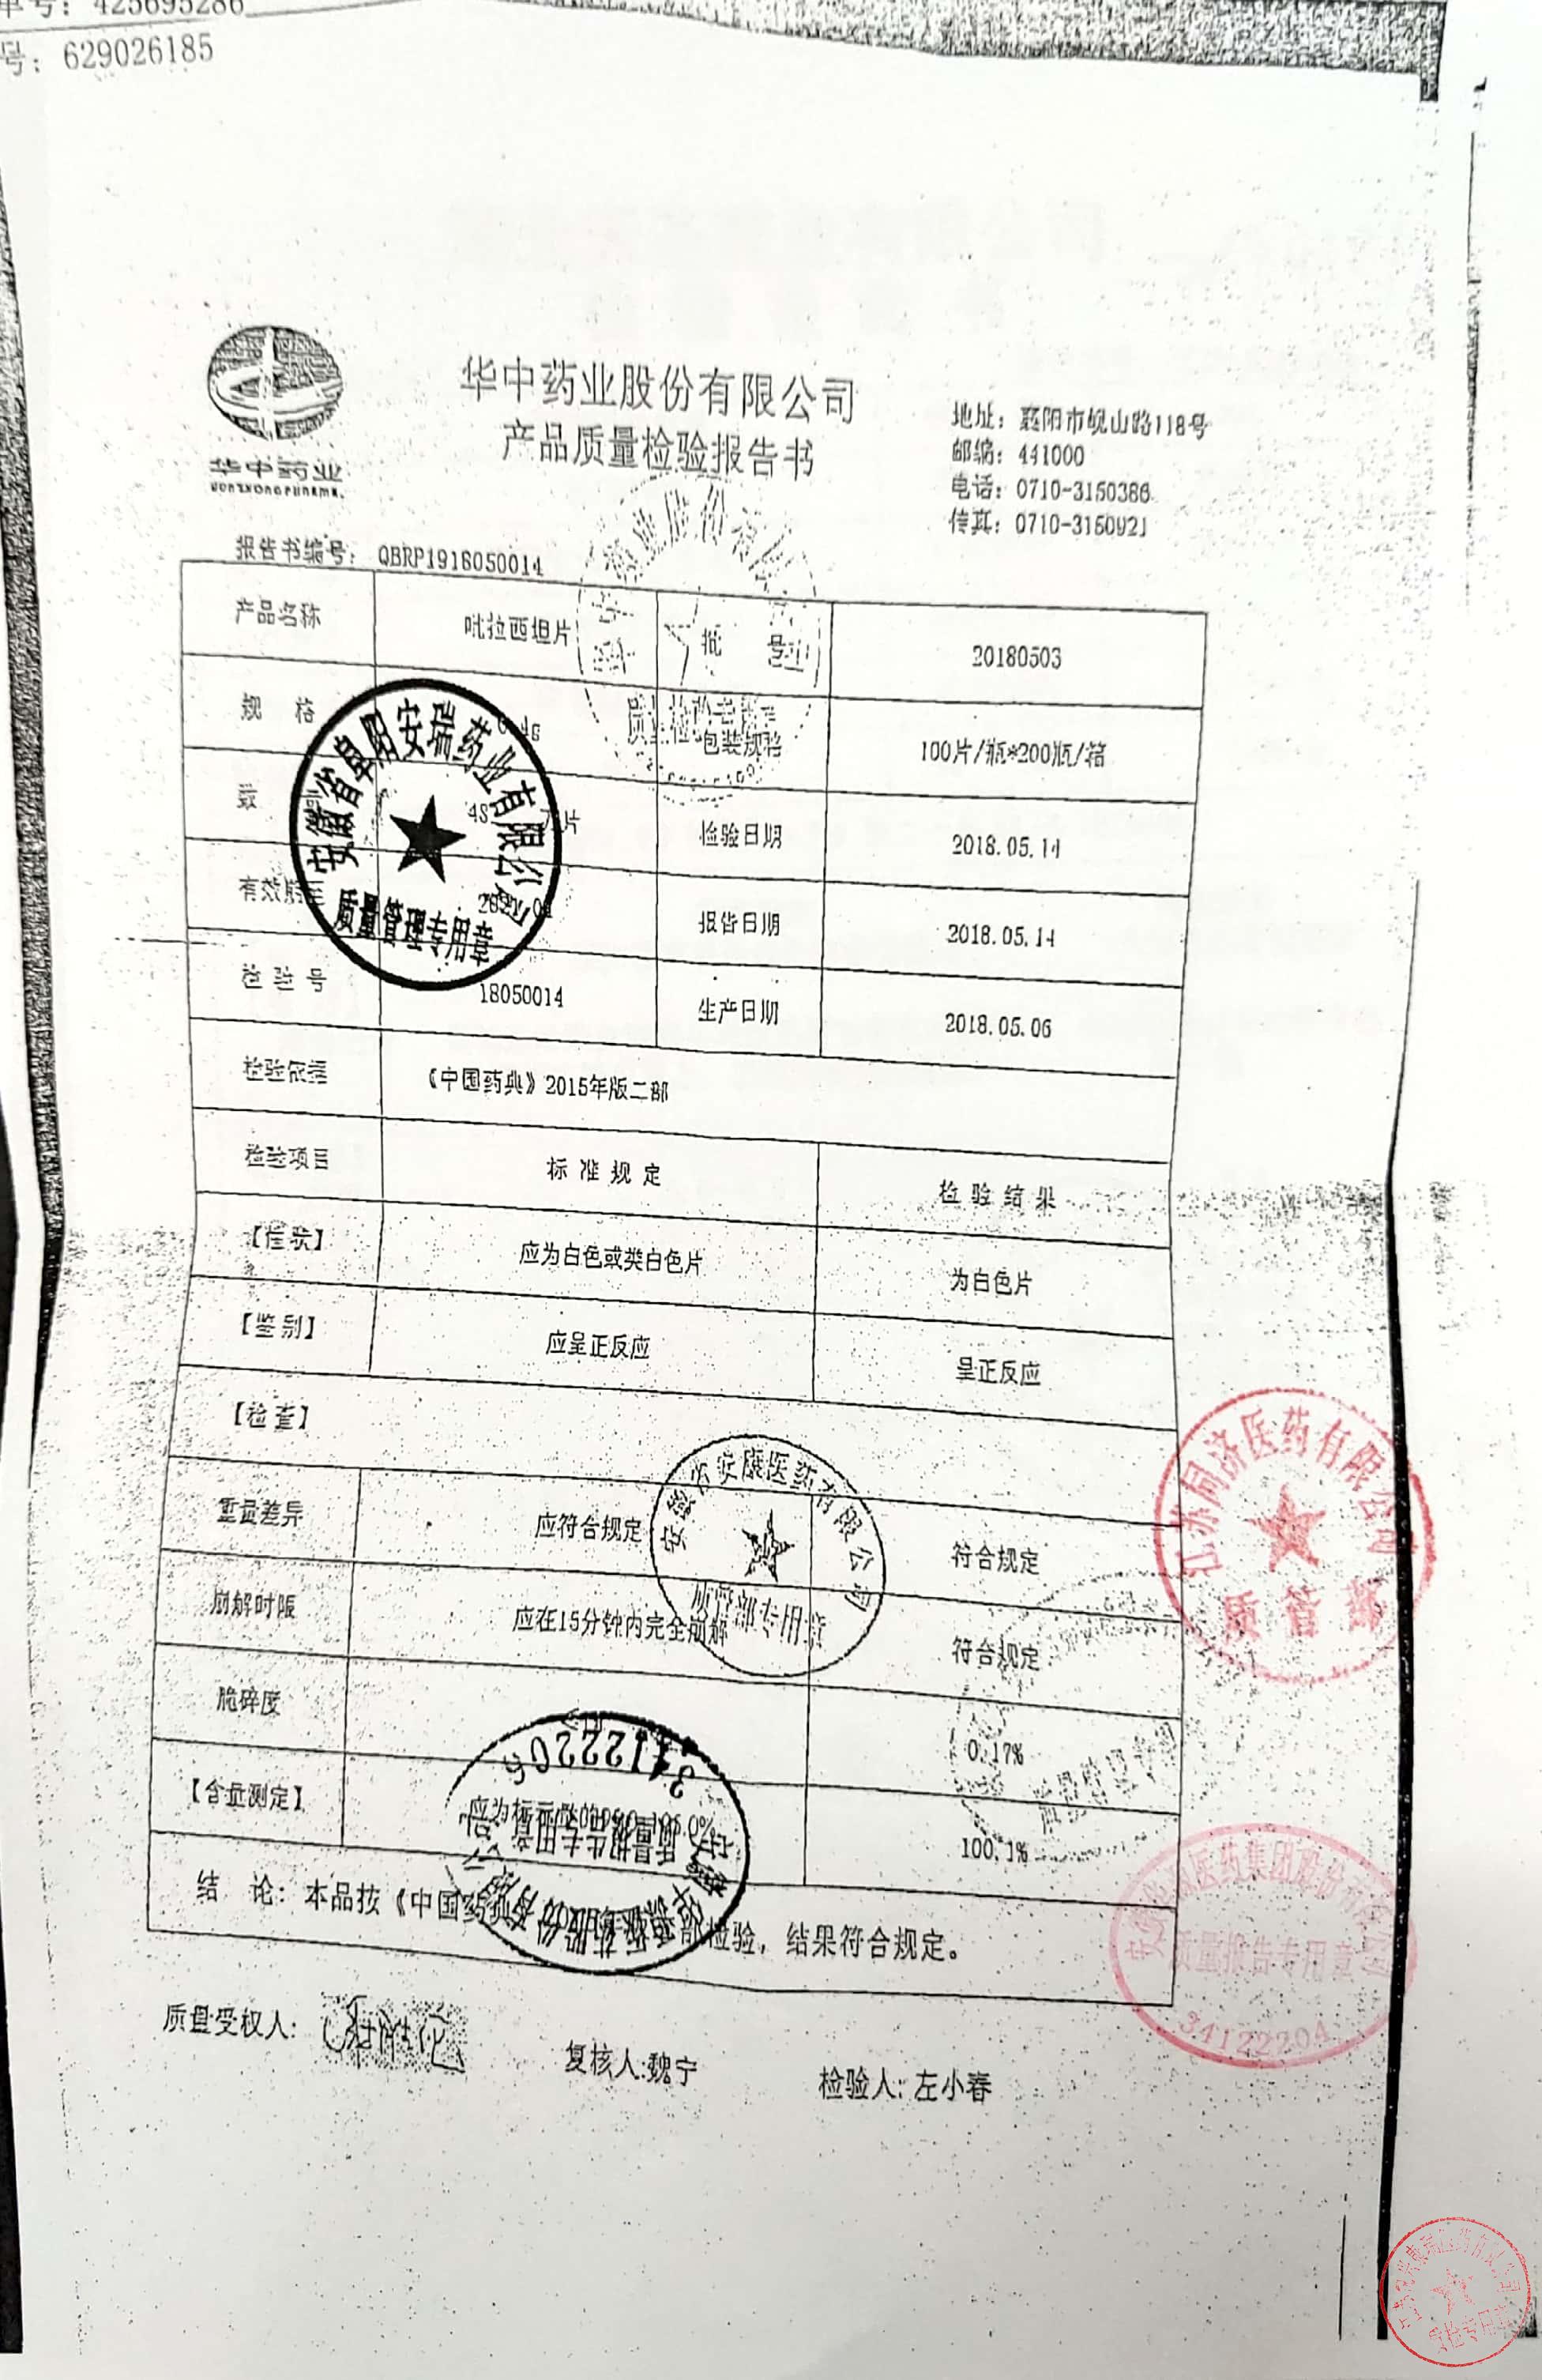 单号：425695286
号：629026185
华中药业
华中药业股份有限公司
产品质量检验报告书
地址：襄阳市岘山路118号
邮编：441000
电话：0710-3150386
传真：0710-3150921
报告书编号：QBRP1918050014
产品名称 吡拉西坦片 批 号 20180503
规 格 包装规格 100片/瓶*200瓶/箱
数 万片 检验日期 2018.05.14
有效期至 报告日期 2018.05.14
检验号 18050014 生产日期 2018.05.06
检验依据 《中国药典》2015年版二部
检验项目 标准规定 检验结果
【性状】 应为白色或类白色片 为白色片
【鉴别】 应呈正反应 呈正反应
【检查】
重量差异 应符合规定 符合规定
崩解时限 应在15分钟内完全崩解 符合规定
脆碎度 0.17%
【含量测定】 100.1%
结 论：本品按《中国药 检验，结果符合规定。
质量受权人：
复核人:魏宁
检验人：左小春
安徽省阜阳安瑞药业有限公司
质量管理专用章
安康医药有限公司
质管部专用章
质量报告专用章
江苏同济医药有限公司
质管部
医药集团股份有限公司
质量报告专用章
34122204
质检专用章